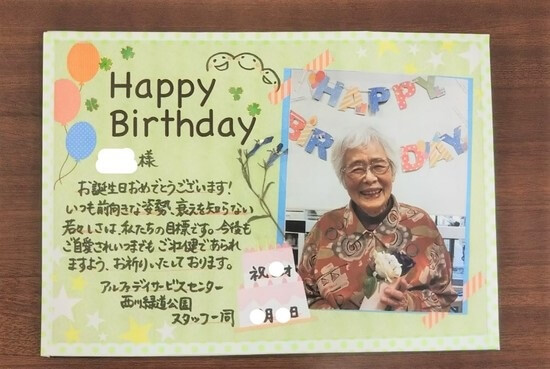 Happy
Birthday
様
お誕生日おめでとうございます!
いつも前向きな姿勢、衰えを知らない
若々しさは、私たちの目標です。今後も
ご自愛されいつまでも ご壮健であられ
ますよう、お祈りいたしております。
アルファデイサービスセンター
西川緑道公園
スタッフ一同
祝 才
月 日
HAPPY
BIRTHDAY